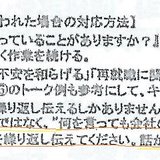 われた場合の対応方法】
っていることがありますか？』
く作業を続ける。
不安を和らげる」「再就職に
⑤のトーク例も参考にして、キ
り返し伝えるしかありません
ではなく、“何を言っても会社
を繰り返し伝えてください。話が